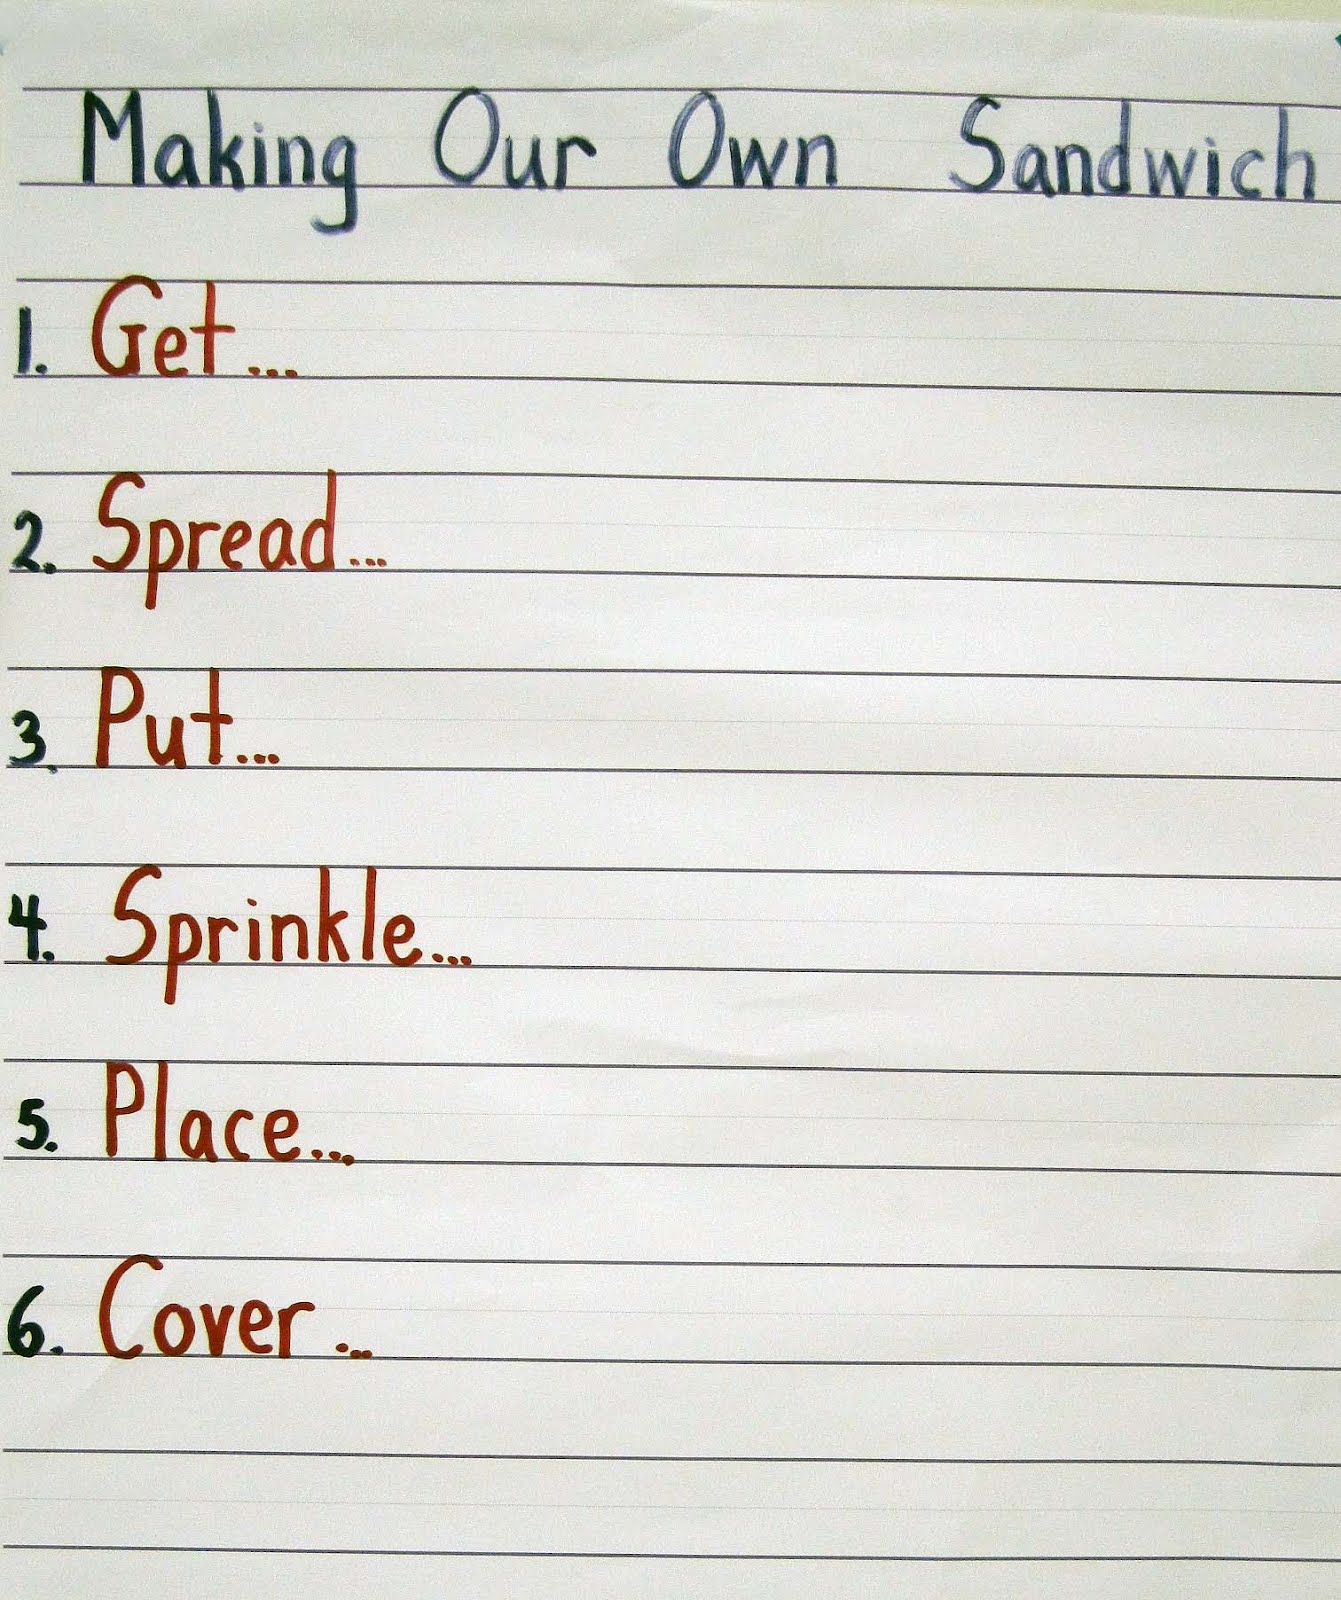 Making Our Own Sandwich
1. Get...
2. Spread...
3. Put...
4. Sprinkle...
5. Place...
6. Cover...